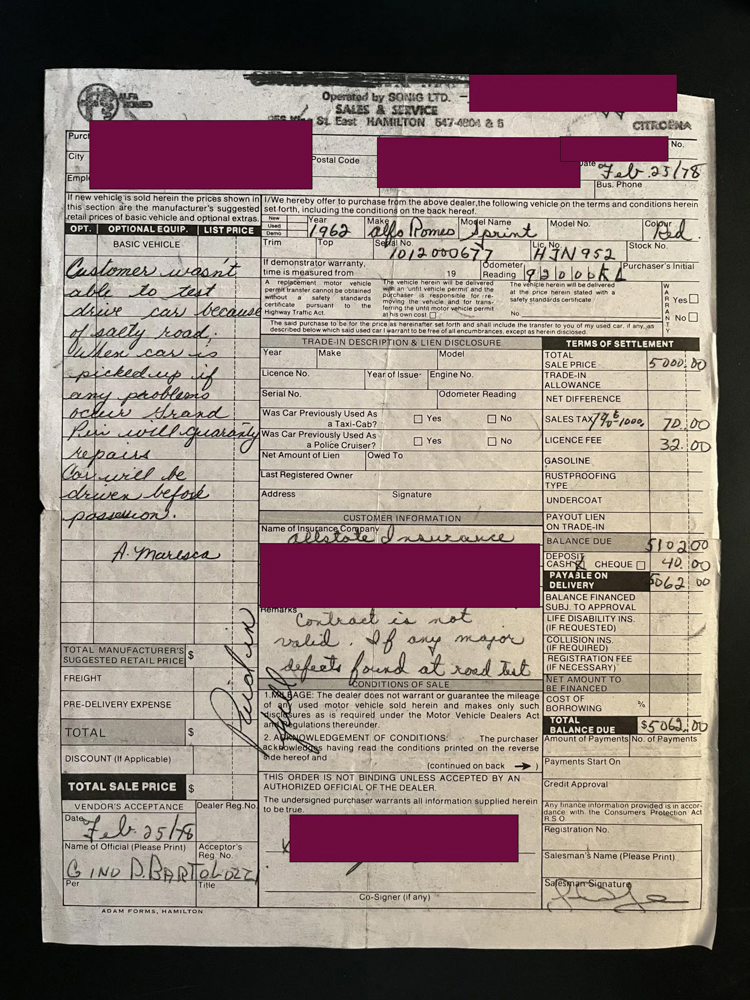 ALFA
ROMEO
Operated by SONIG LTD. –
SALES & SERVICE
St. East HAMILTON 547-4804 & 5
CITROENA
Purch
City
Postal Code
No.
Date Feb. 25/78
Empl
Bus. Phone
If new vehicle is sold herein the prices shown in
this section are the manufacturer's suggested
retail prices of basic vehicle and optional extras.
I/We hereby offer to purchase from the above dealer, the following vehicle on the terms and conditions herein
set forth, including the conditions on the back hereof.
OPT. OPTIONAL EQUIP. LIST PRICE
BASIC VEHICLE
New
Used
Demo
Year 1962
Make Alfa Romeo
Model Name Sprint
Model No.
Colour Red.
Trim
Top
Serial No. 1012000677
Lic. No. HJN 952
Stock No.
If demonstrator warranty,
time is measured from 19
Odometer
Reading
Purchaser's Initial
A replacement motor vehicle
permit transfer cannot be obtained
without a safety standards
certificate pursuant to the
Highway Traffic Act.
The vehicle herein will be delivered
with an 'unfit vehicle permit' and the
purchaser is responsible for re-
moving the vehicle, and for trans-
ferring the unfit motor vehicle permit
at his own cost
The vehicle herein will be delivered
at the price herein stated with a
safety standards certificate
No.
WARRANTY
Yes
No
The said purchase to be for the price as hereinafter set forth and shall include the transfer to you of my used car, if any, as
described below which said used car I warrant to be free of all encumbrances, except as herein disclosed.
Customer wasn't
able to test
drive car because
of salty road;
When car is
picked up if
any problems
occur Grand
Prix will guaranty
repairs
Car will be
driven before
possession.
A. Maresca
TRADE-IN DESCRIPTION & LIEN DISCLOSURE
Year
Make
Model
Licence No.
Year of Issue
Engine No.
Serial No.
Odometer Reading
Was Car Previously Used As
a Taxi-Cab?
Yes
No
Was Car Previously Used As
a Police Cruiser?
Yes
No
Net Amount of Lien
Owed To
Last Registered Owner
Address
Signature
CUSTOMER INFORMATION
Name of Insurance Company
Allstate Insurance
Remarks
Contract is not
valid. If any major
defects found at road test
CONDITIONS OF SALE
1. MILEAGE: The dealer does not warrant or guarantee the mileage
of any used motor vehicle sold herein and makes only such
disclosures as is required under the Motor Vehicle Dealers Act
and Regulations thereunder.
2. ACKNOWLEDGEMENT OF CONDITIONS: The purchaser
acknowledges having read the conditions printed on the reverse
side hereof and
(continued on back → )
THIS ORDER IS NOT BINDING UNLESS ACCEPTED BY AN
AUTHORIZED OFFICIAL OF THE DEALER.
The undersigned purchaser warrants all information supplied herein
to be true.
x
Co-Signer (if any)
TERMS OF SETTLEMENT
TOTAL
SALE PRICE 5000.00
TRADE-IN
ALLOWANCE
NET DIFFERENCE
SALES TAX 70.00
LICENCE FEE 32.00
GASOLINE
RUSTPROOFING
TYPE
UNDERCOAT
PAYOUT LIEN
ON TRADE-IN
BALANCE DUE 5102 00
DEPOSIT
CASH X CHEQUE 40.00
PAYABLE ON
DELIVERY 5062 00
BALANCE FINANCED
SUBJ. TO APPROVAL
LIFE DISABILITY INS.
(IF REQUESTED)
COLLISION INS.
(IF REQUIRED)
REGISTRATION FEE
(IF NECESSARY)
NET AMOUNT TO
BE FINANCED
COST OF
BORROWING %
TOTAL
BALANCE DUE $5062.00
Amount of Payments
No. of Payments
Payments Start On
Credit Approval
Any finance information provided is in accor-
dance with the Consumers Protection Act
R.S.O.
Registration No.
Salesman's Name (Please Print)
Salesman Signature
TOTAL MANUFACTURER'S
SUGGESTED RETAIL PRICE $
FREIGHT
PRE-DELIVERY EXPENSE
TOTAL $
DISCOUNT (If Applicable)
TOTAL SALE PRICE $
Paid in
full
VENDOR'S ACCEPTANCE
Dealer Reg. No.
Date Feb 25/78
Name of Official (Please Print)
Acceptor's
Reg. No.
GINO D. BARTOLOZZI
Per
Title
ADAM FORMS, HAMILTON